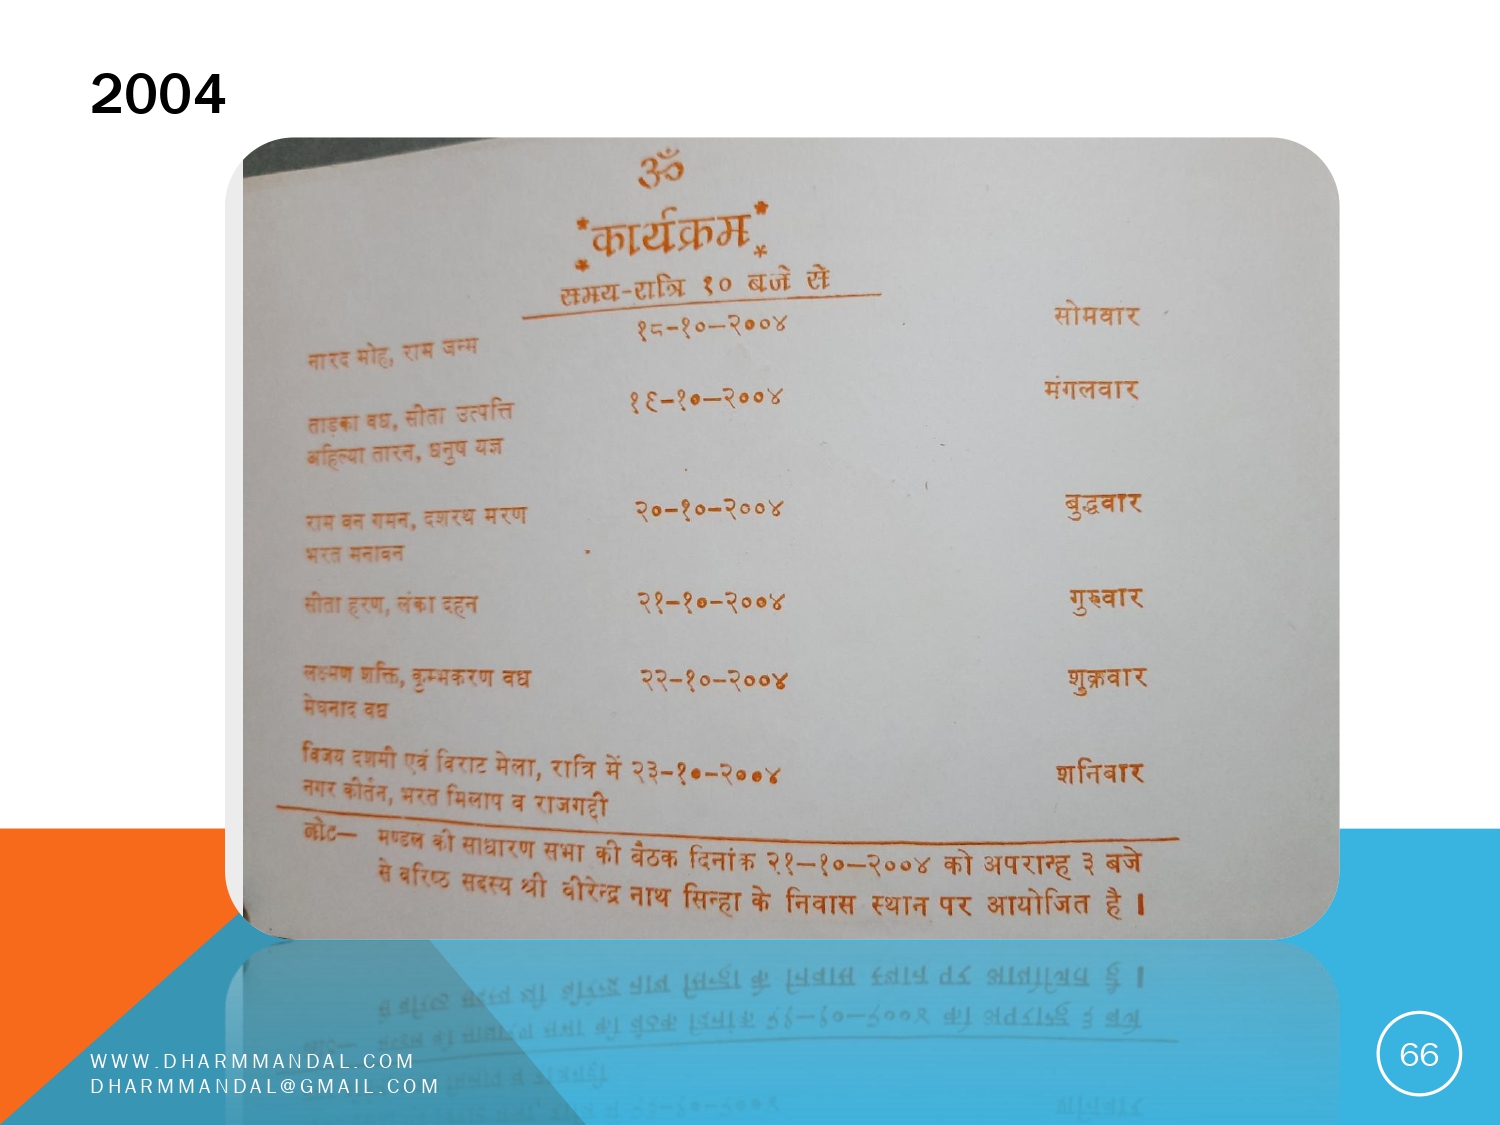 2004
ॐ
कार्यक्रम
समय-रात्रि १० बजे से
नारद मोह, राम जन्म १८-१०-२००४ सोमवार
ताड़का वध, सीता उत्पत्ति १९-१०-२००४ मंगलवार
अहिल्या तारन, धनुष यज्ञ
राम वन गमन, दशरथ मरण २०-१०-२००४ बुद्धवार
भरत मनावन
सीता हरण, लंका दहन २१-१०-२००४ गुरुवार
लक्ष्मण शक्ति, कुम्भकरण वध २२-१०-२००४ शुक्रवार
मेघनाद वध
विजय दशमी एवं विराट मेला, रात्रि में २३-१०-२००४ शनिवार
नगर कीर्तन, भरत मिलाप व राजगद्दी
नोट— मण्डल की साधारण सभा की बैठक दिनांक २१-१०-२००४ को अपरान्ह ३ बजे
से वरिष्ठ सदस्य श्री वीरेन्द्र नाथ सिन्हा के निवास स्थान पर आयोजित है ।
WWW.DHARMMANDAL.COM
DHARMMANDAL@GMAIL.COM
66